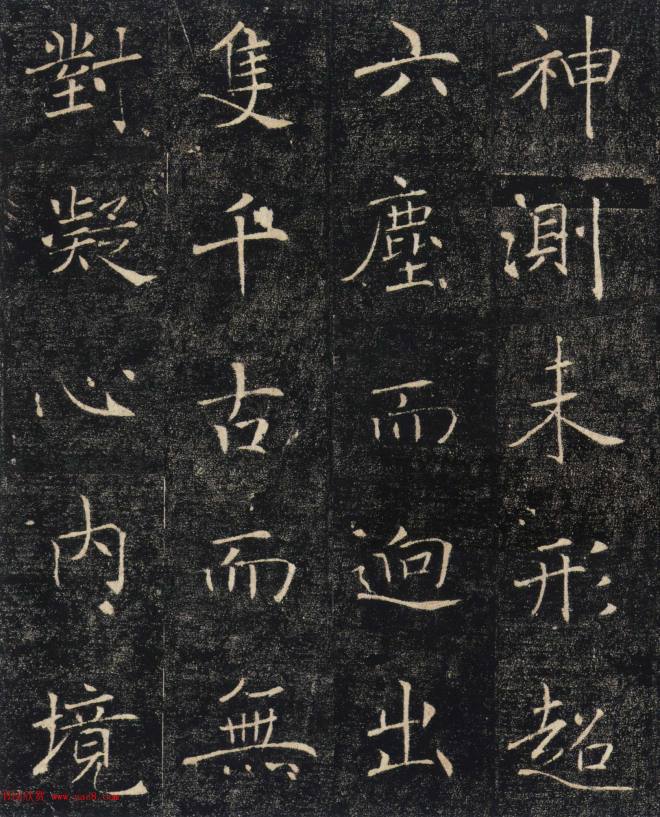 神測未形超
六塵而迥出
隻千古而無
對凝心內境
www.yac8.com